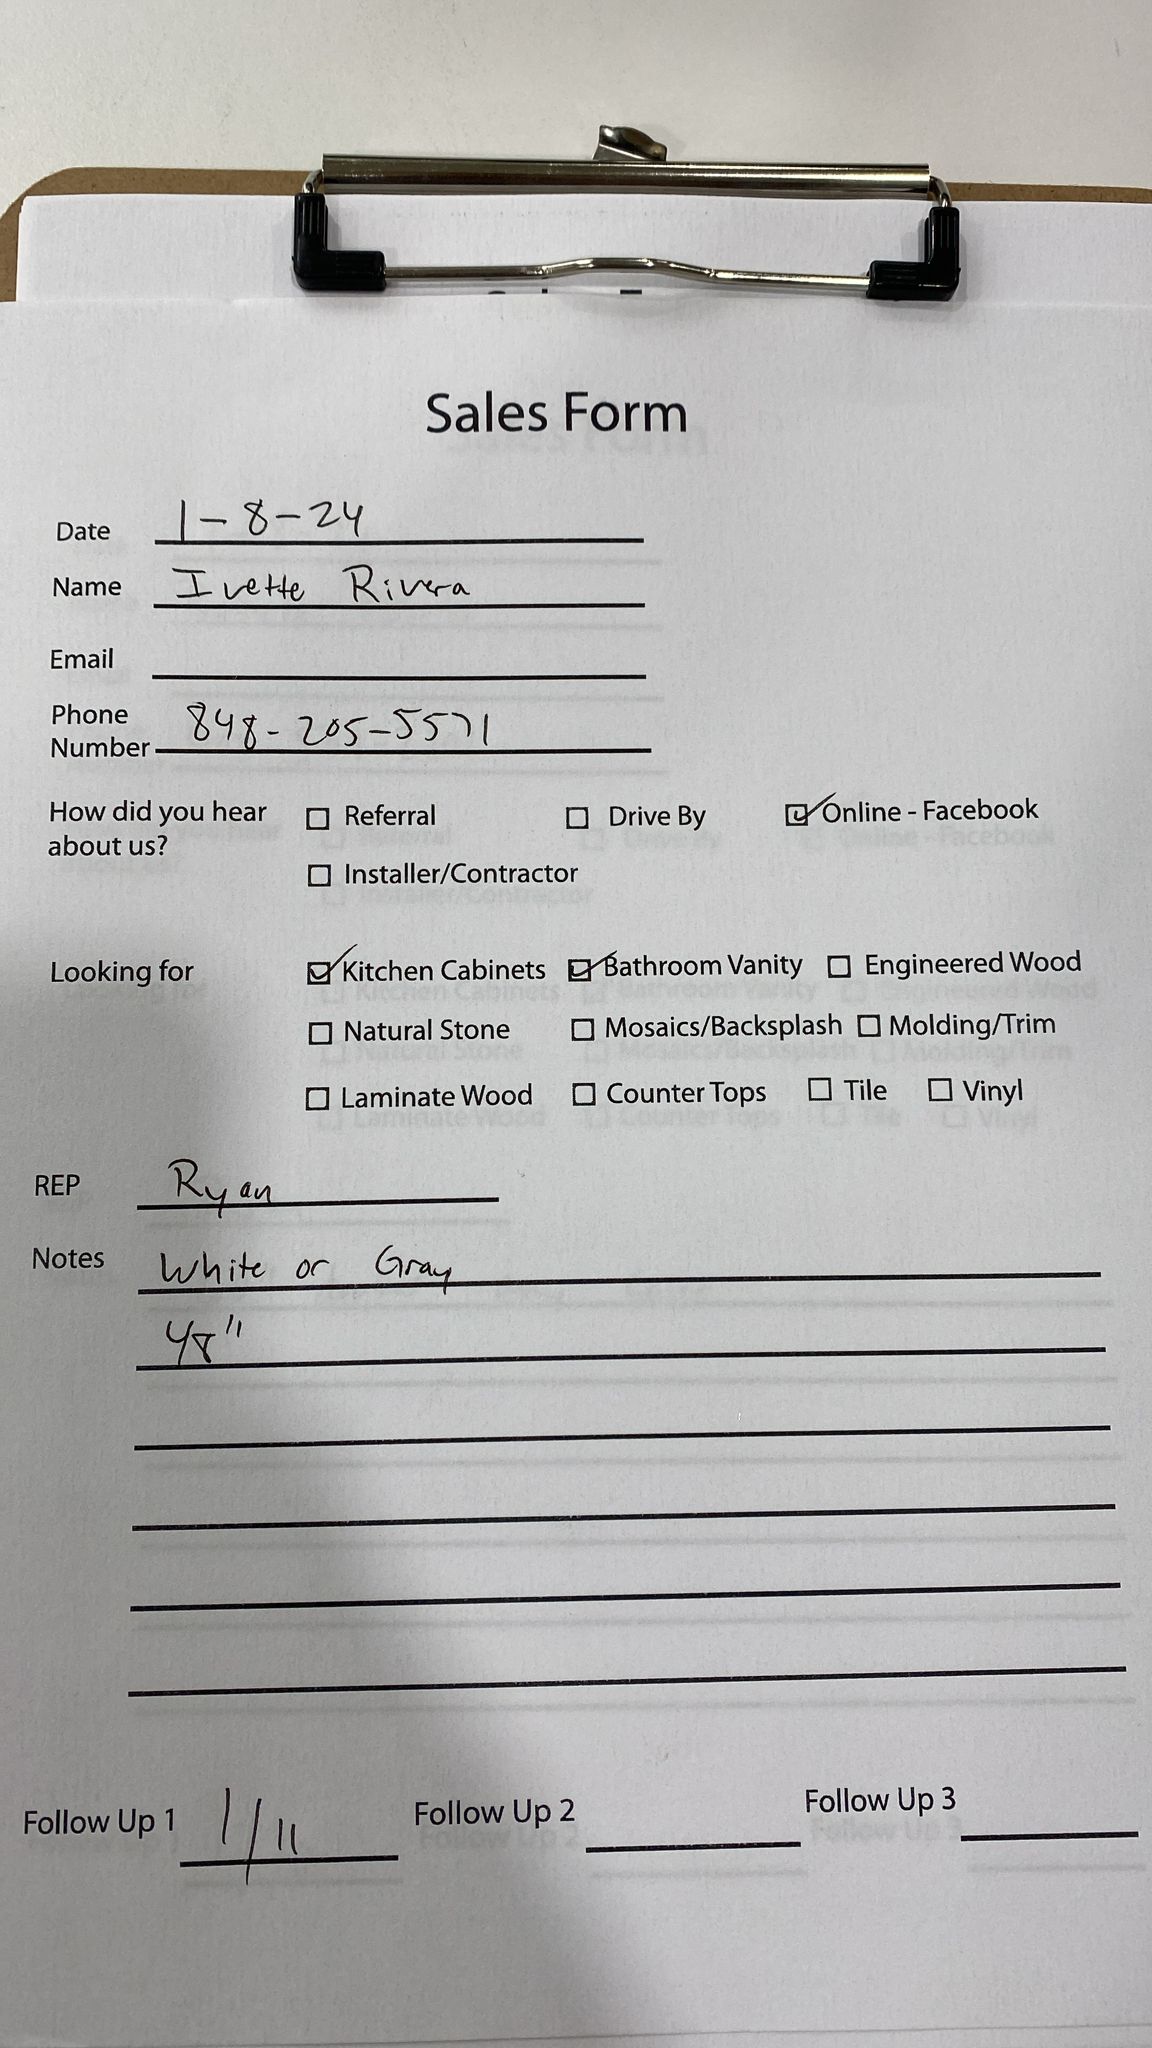 Sales Form
Date 1-8-24
Name Ivette Rivera
Email
Phone Number 848-205-5571
How did you hear about us? ☐ Referral ☐ Drive By ☑ Online - Facebook
☐ Installer/Contractor
Looking for ☑ Kitchen Cabinets ☑ Bathroom Vanity ☐ Engineered Wood
☐ Natural Stone ☐ Mosaics/Backsplash ☐ Molding/Trim
☐ Laminate Wood ☐ Counter Tops ☐ Tile ☐ Vinyl
REP Ryan
Notes White or Gray
48"
Follow Up 1 1/11 Follow Up 2 Follow Up 3